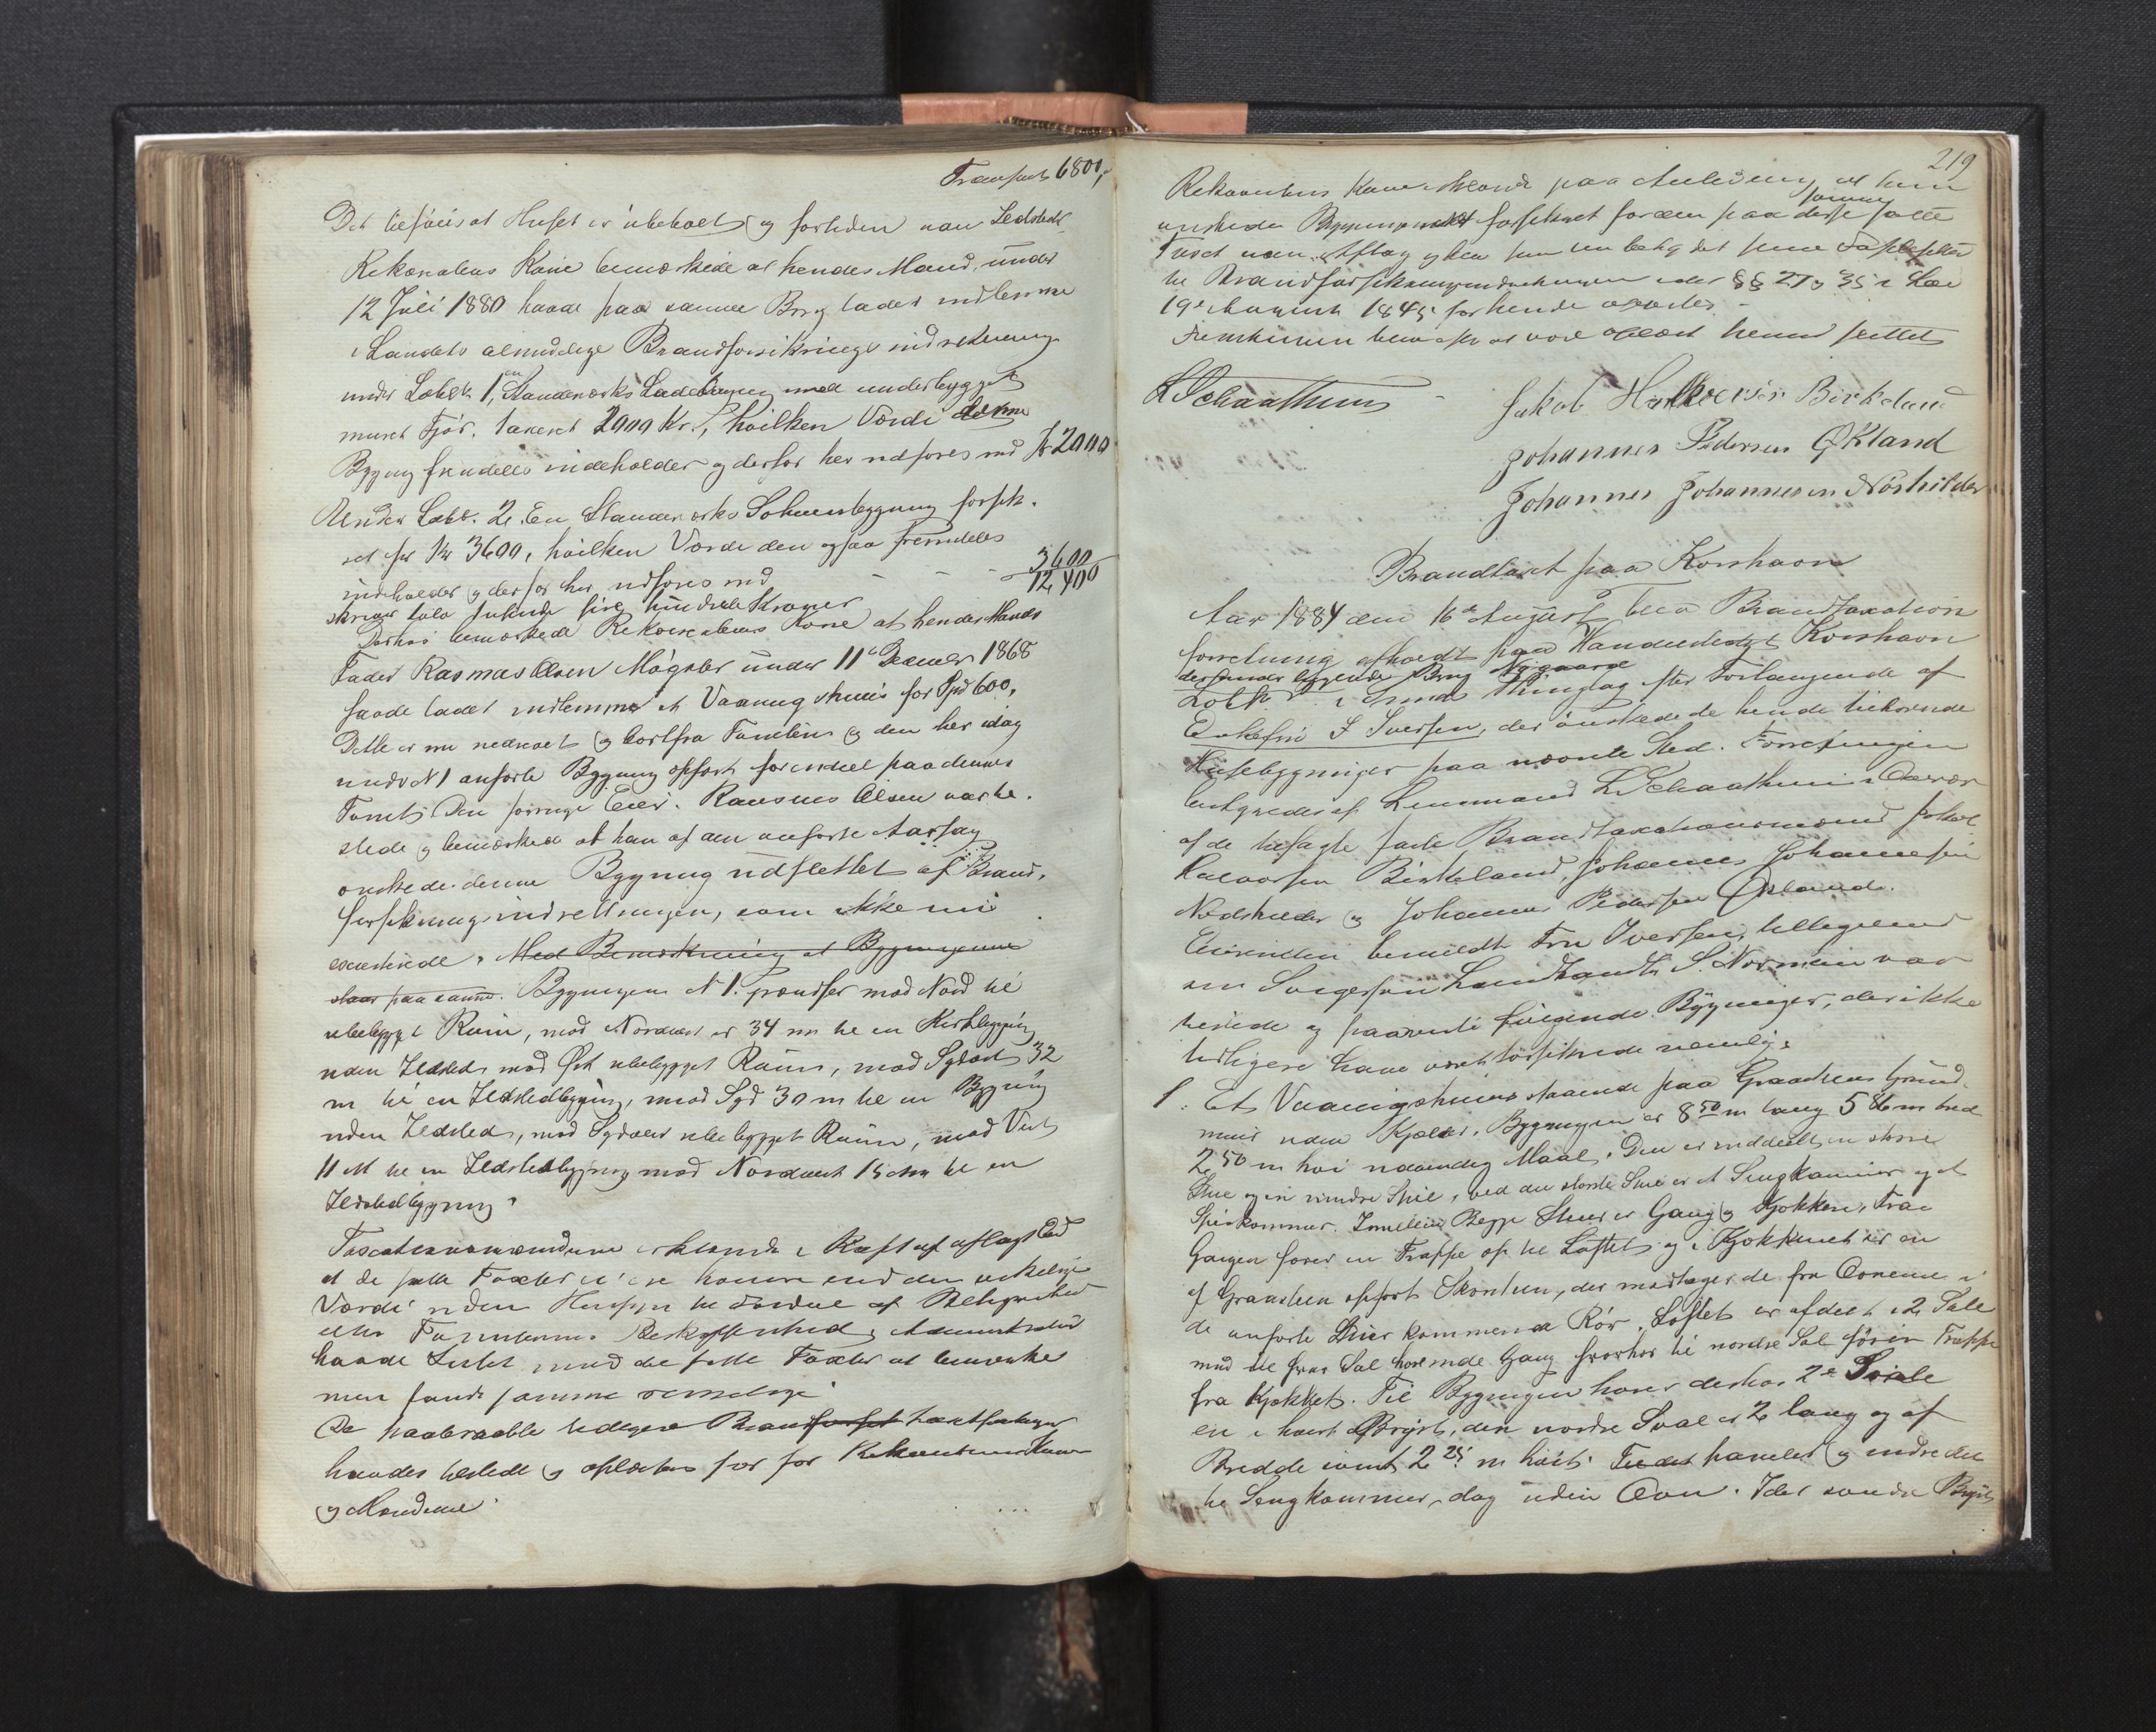 Transport 6800,
Det tilføies at Huset er ubeboet og forleden uden Ildsted
Rekvirentens Kone bemærkede at hendes Mand under
12 Juli 1880 havde paa samme Brug ladet indlemme
i Landets almindelige Brandforsikrings indretning
under Løbe N 1, en Standerværks Ladebygning med underbygget
muret Fjøs, taxeret 2000 Kr., hvilken Værdi denne
Bygning fremdeles indeholder og derfor her udføres med Kr 2000
Under Løbe N. 2. En Standerværks Bygning forsik-
ret for Kr 3600, hvilken Værdi den ogsaa fremdeles
indeholder og derfor her udføres med - - - 3600
12,400
skriver tolv tusinde fire hundrede Kroner
Derhos bemærkede Rekvirentens Kone at hendes Mands
Fader Rasmus Olsen Møgster under 11 December 1868
havde ladet indlemme et Vaaningshuus for Spd 600,
Dette er nu nedrevet og bortfra Tomten og den her idag
under N 1 anførte Bygning opført for endeel paa dennes
Tomt. Den forrige Eier Rasmus Olsen var til-
stede og bemærkede at han af den anførte Aarsag
ønskede denne Bygning udslettet af Brand-
forsikringsindretningen, som ikke nu
existerende. Med Bemærkning at Bygningerne
staar paa samme. Bygningen N 1. grændser mod Nord til
ubebygget Rum, mod Nordost er 34 m til en Bygning
uden Ildsted, mod Øst ubebygget Rum, mod Sydost 32
m til en Ildstedbygning, mod Syd 30 m til en Bygning
uden Ildsted, mod Sydvest ubebygget Rum, mod Vest
11 M til en Ildstedbygning mod Nordvest 15 m til en
Ildstedbygning.
Taxationsmændene erklærede i Kraft af aflagt Ed
at de satte Taxter ei ere høiere end den virkelige
Værdi uden Hensyn til Fordeel af Beliggenhed
eller Tomternes Beskaffenhed, Administrator
havde Intet mod de satte Taxter at bemærke
men fandt samme rimelige
De paaberaabte tidligere Brandforsik taxtforretninger
havdes tilstede og oplæstes for for Rekvirentens Kone
og Mændene
219
Rekvirentens Kone paa Anledning at hun
ønskede Bygningerne forsikret for den paa disse samme satte
Taxt uden Aftag
til Brandforsikringsindretningen eller §§ 27 og 35 i Lov
19de August 1845 for hende oplæstes.
Forretningen blev efter at være oplæst hermed sluttet
L Schaathuun - Jakob Halvorsen Birkeland
Johannes Pedersen Økland
Johannes Johannesen Nøshilder
Brandtaxt paa Korshavn
Aar 1884 den 16de August blev Brandtaxations
forretning afholdt paa Handelsstedet Korshavn
dersunder liggende Brug Nygaard
i Thinglag efter Forlangende af
Enkefru S Iversen, der ønskede de hende tilhørende
Husebygninger paa nævnte Sted. Forretningen
bestyredes af Lensmand L Schaathuun i Overvær
af de tilsagte faste Brandtaxationsmænd Jakob
Halvorsen Birkeland, Johannes Johannesen
Nødshilder og Johannes Pedersen Økland.
Eierinden bemeldte Fru Iversen, tilligemed
sin Svigersøn Landhandler S. Normann var
tilstede og paaviste følgende Bygninger, der ikke
tidligere have været forsikrede nemlig:
1. Et Vaaningshuus staaende paa Graasteens Grund-
muur uden Kjælder. Bygningen er 8 50 m lang 5 86 m bred
2 50 m høi udvendig Maal. Den er inddeelt i en større
Stue og en mindre Stue, ved den største Stue er et Sengkammer og et
Spisekammer. Imellem Begge Stuer er Gang og Kjøkken. Fra
Gangen fører en Trappe op til Loftet og i Kjøkkenet er en
af Graasteen opført Skorsteen, der modtager de fra Ovnene i
de anførte Stuer kommende Rør. Loftet er afdeelt i 2 Sale
med til hver Sal hørende Gang hvorhos til nordre Sal fører Trappe
fra Kjøkket. Til Bygningen hører derhos 2de Svale
en i hvert Bryst, den nordre Sval er 2 lang og af
Bredde samt 2 25 m høit. panelet og indredet
til Sengkammer, dog uden Ovn. I det søndre Bryst